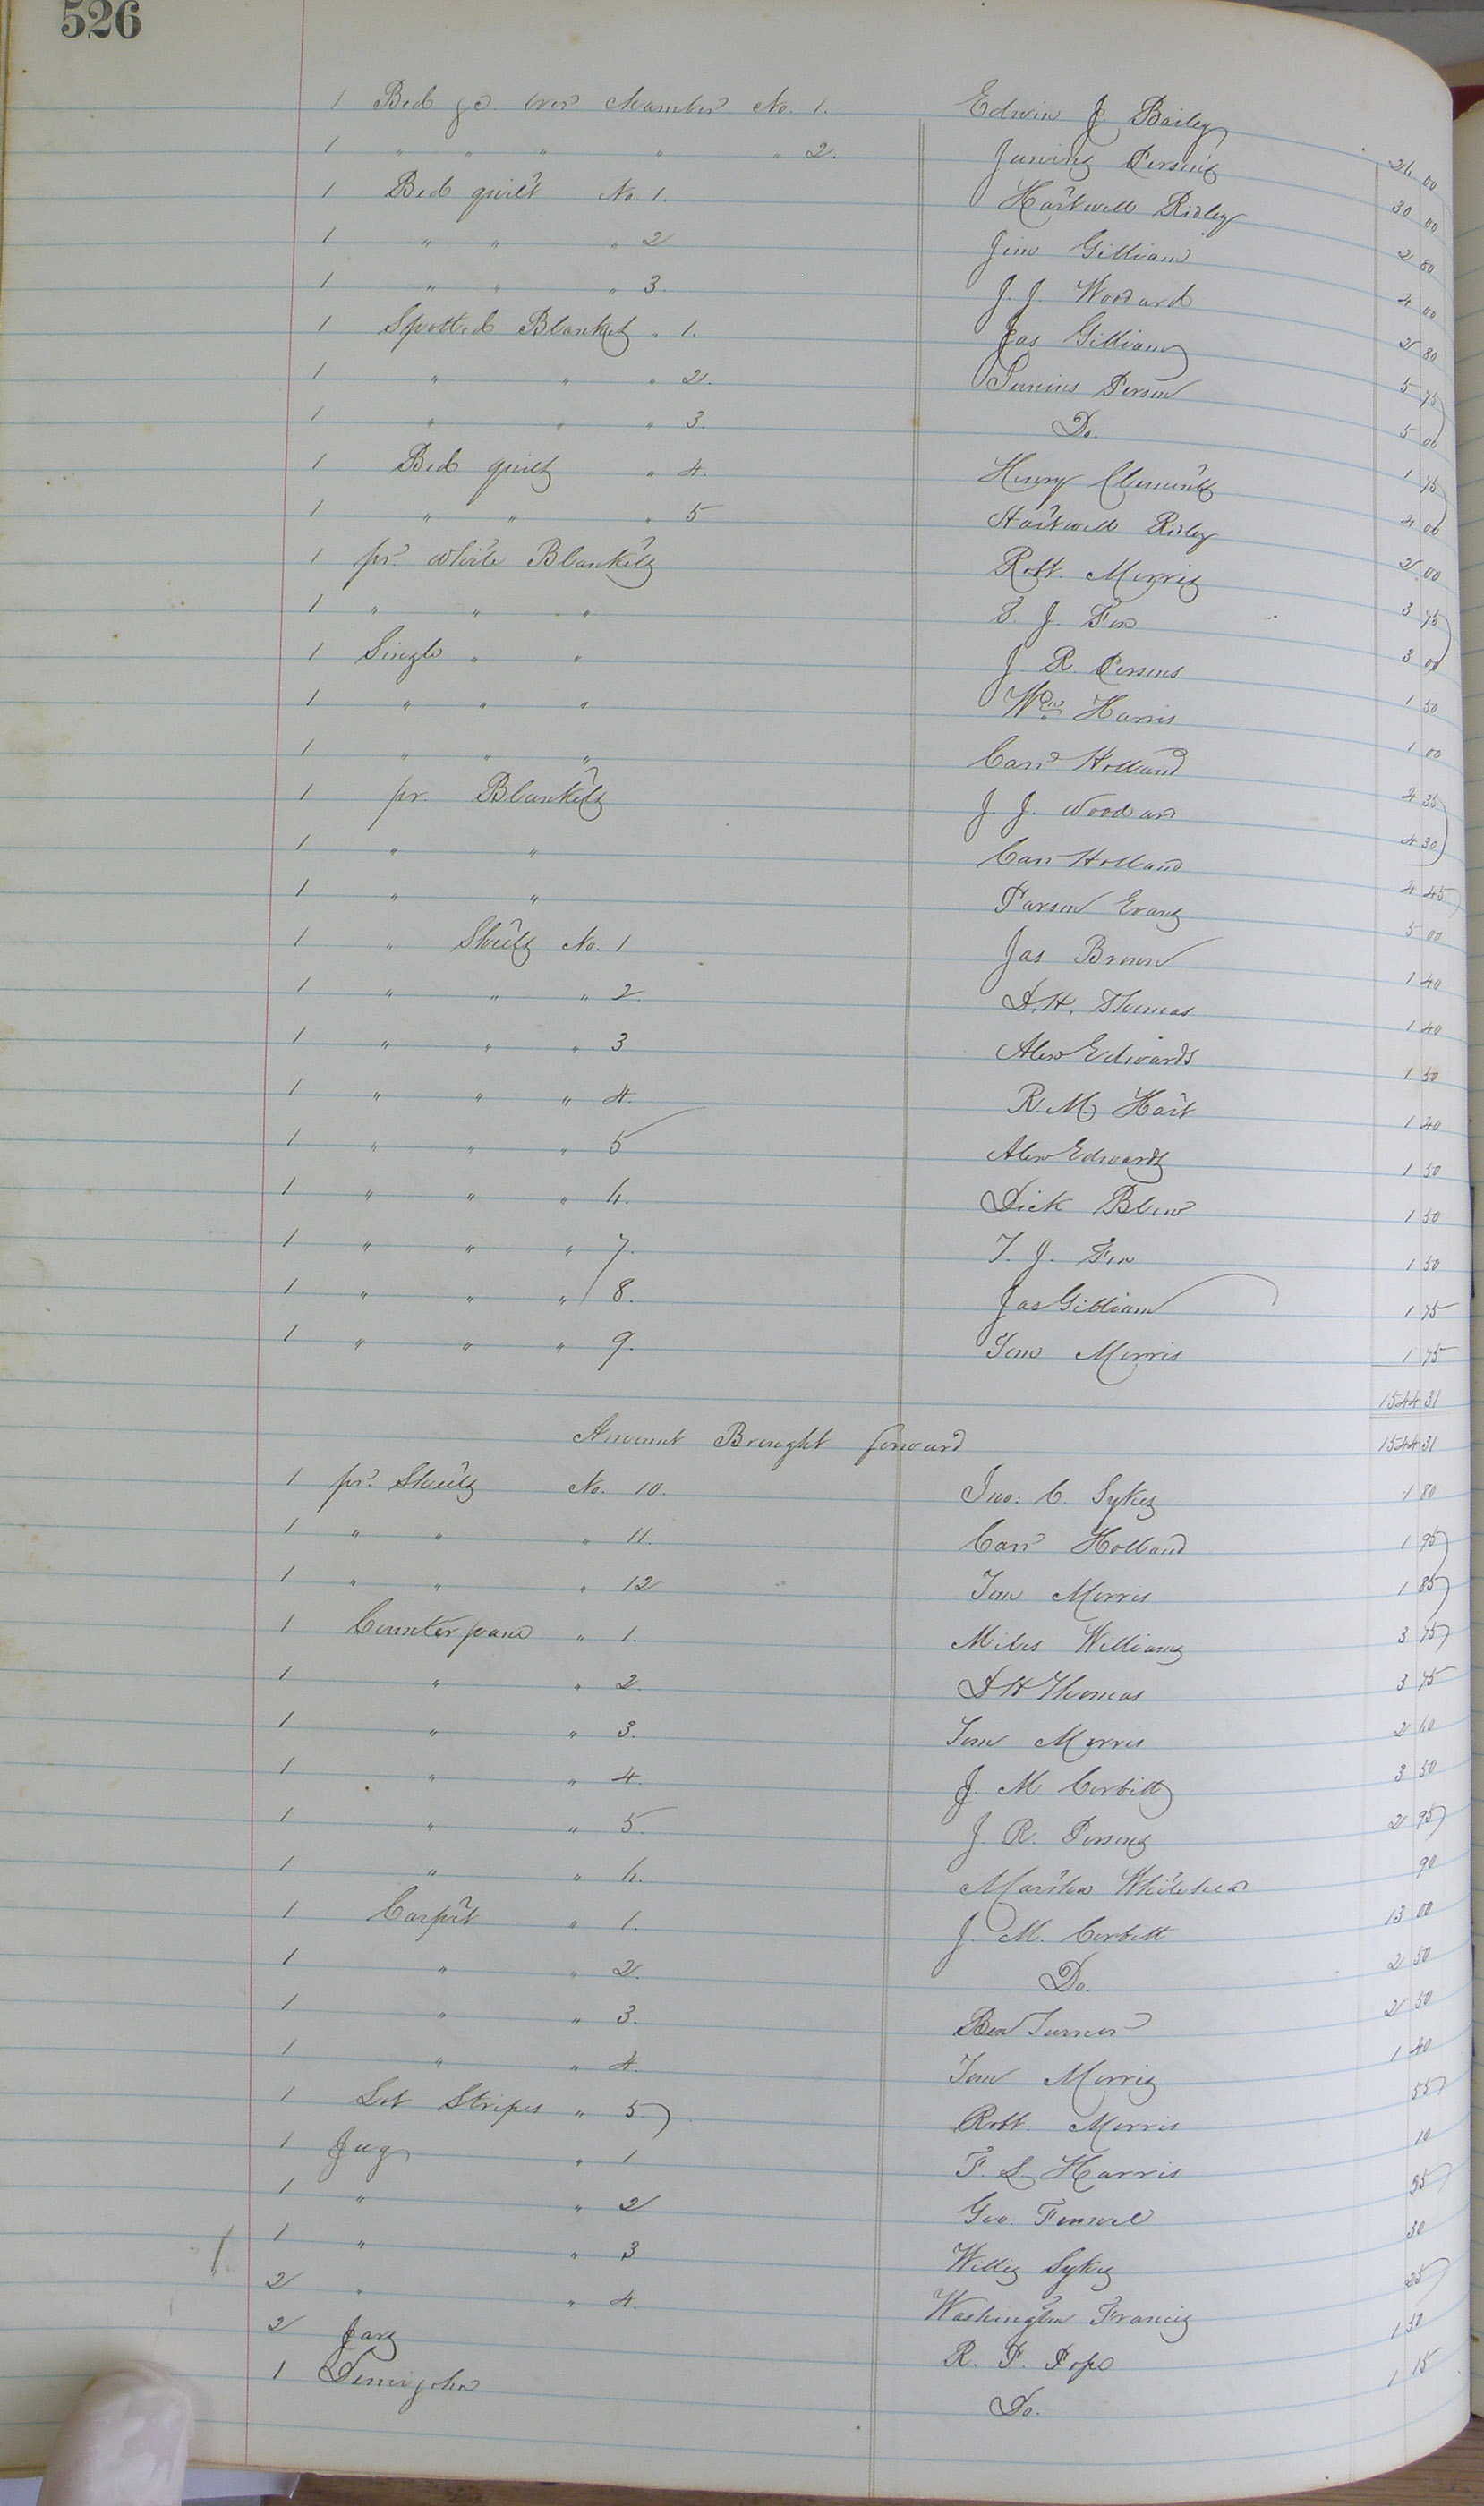 526
1 Bed &c. over Chamber No. 1. Edwin J. Bailey 26 00
1 " " " " " 2. Junius Persons 30 00
1 Bed quilt No. 1. Hartwell Ridley 2 80
1 " " " 2 Jim Gilliam 4 00
1 " " " 3. J. J. Woodard 2 80
1 Spotted Blanket " 1. Jas Gilliam 5 75
1 " " " 2. Junius Person 5 00
1 " " " 3. Do. 1 75
1 Bed quilt " 4. Henry Clements 4 00
1 " " " 5 Hartwell Ridley 2 00
1 pr. white Blankets Robt. Morris 3 75
1 " " " T. J. Fox 3 00
1 Single " " J. R. Persons 1 50
1 " " " Wm Harris 1 00
1 " " " Carr Holland 4 35
1 pr. Blankets J. J. Woodard 4 30
1 " " Carr Holland 4 45
1 " " Parson Evans 5 00
1 " Sheets No. 1 Jas Brown 1 40
1 " " " 2. D. H. Thomas 1 40
1 " " " 3 Alex Edwards 1 50
1 " " " 4. R. M. Hart 1 40
1 " " " 5 Alex Edwards 1 50
1 " " " 6. Dick Blow 1 50
1 " " " 7. T. J. Fox 1 50
1 " " " 8. Jas Gilliam 1 75
1 " " " 9. Tom Morris 1 75
1544 31
Amount Brought forward 1544 31
1 pr. Sheets No. 10. Jno. C. Sykes 1 80
1 " " " 11. Carr Holland 1 95
1 " " " 12 Tom Morris 1 85
1 Counterpane " 1. Miles Williams 3 75
1 " " 2. D H Thomas 3 75
1 " " 3. Tom Morris 2 60
1 " " 4. J. M. Corbitt 3 50
1 " " 5. J. R. Persons 2 95
1 " " 6. Martha Whitehead 90
1 Carpet " 1. J. M. Corbett 13 00
1 " " 2. Do. 2 50
1 " " 3. Ben Turner 2 50
1 " " 4. Tom Morris 1 40
1 Lot Stripes " 5. Robt. Morris 55
1 Jug " 1 F. L. Harris 10
1 " " 2 Geo. Fennel 35
1 " " 3 Willis Sykes 30
2 " " 4. Washington Francis 25
2 Jars R. P. Pope 1 50
1 Demijohn Do. 1 15